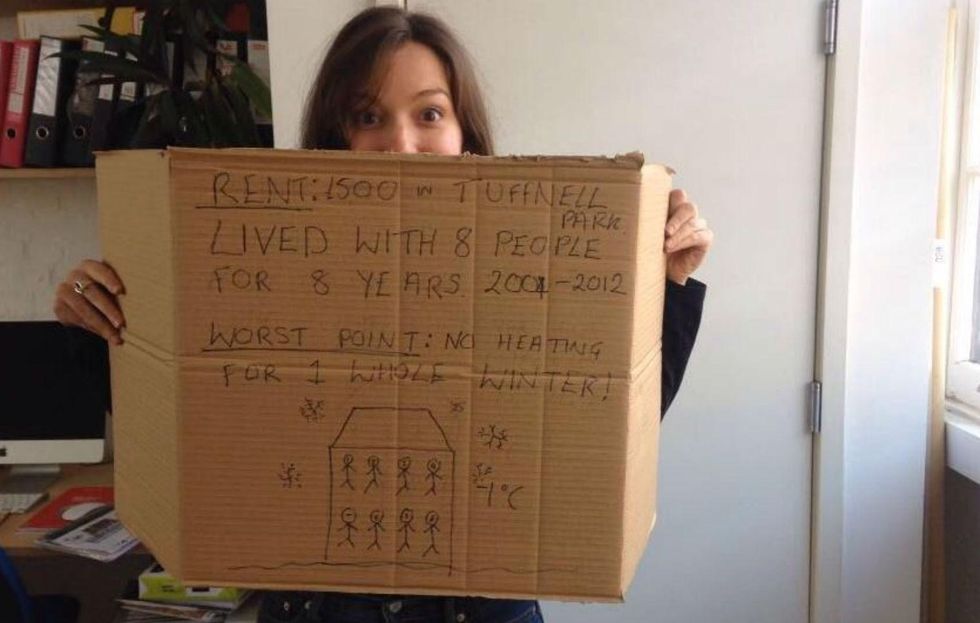 RENT: £500 IN TUFFNELL
PARK.
LIVED WITH 8 PEOPLE
FOR 8 YEARS. 2004-2012
WORST POINT: NO HEATING
FOR 1 WHOLE WINTER!
-1°C